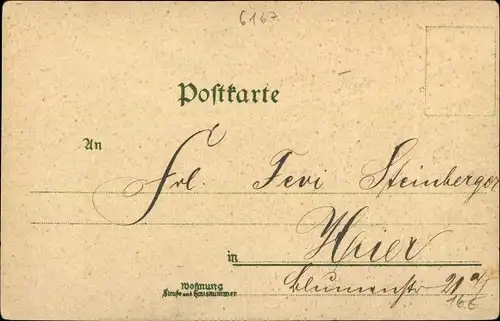 6167
Postkarte
An
Frl. Fevi Steinberger
in Hier
Wohnung
Straße und Hausnummer
Blumenstr 21
16€